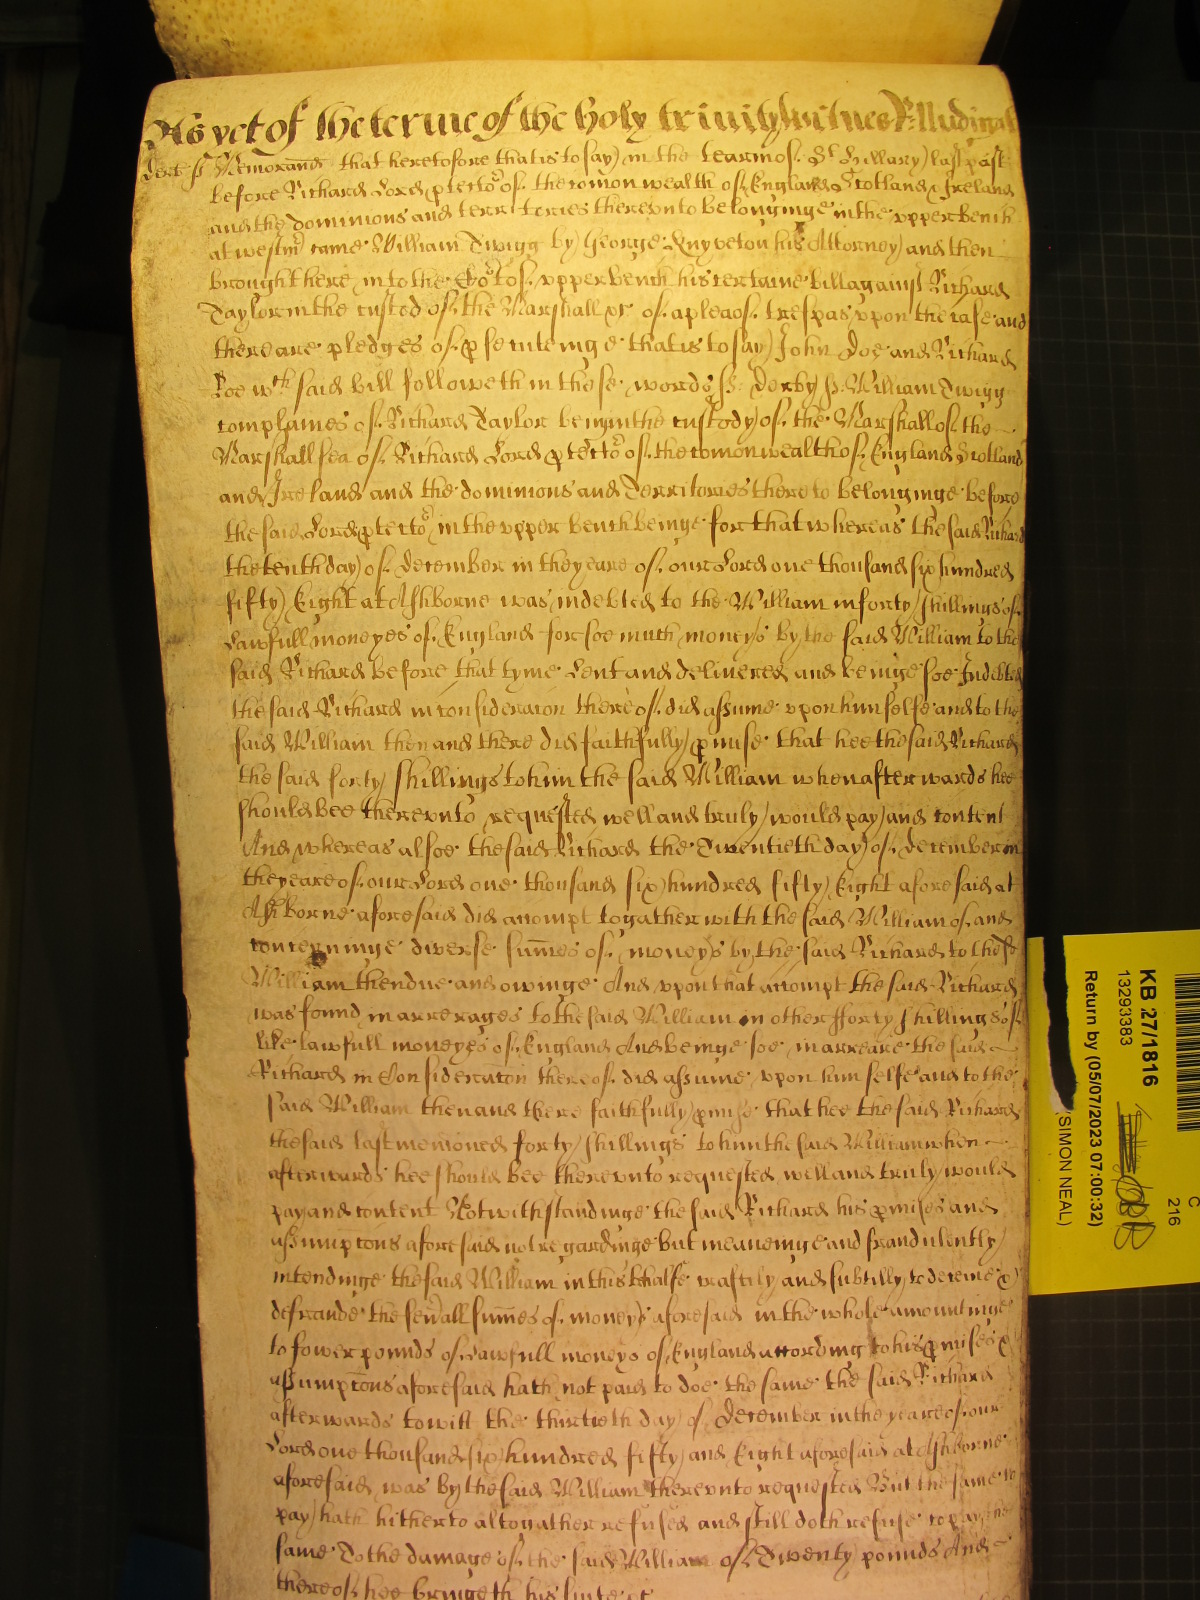 As yet of the terme of the holy trinity witnes R: Nudigat
Derb ss Memorand that heretofore that is to say in the tearm of St Hillary last past
before Richard Lord ptector of the comon wealth of England Scotland & Ireland
and the dominions and territories therevnto belonginge in the vpper bench
at westmr came William Twigg by George Knyveton his Attorney and then
brought here into the Cort of vpper bench his certaine bill against Richard
Taylor in the custod of the Marshall &c of a plea of trespas vpon the case and
there are pledges of psecuteinge that is to say John Doe and Richard
Roe wch said bill followeth in these words ss: Derby ss: William Twigg
complaines of Richard Taylor being in the custody of the Marshall of the
Marshallsea of Richard Lord ptector of the comonwealth of England Scotland
and Ireland and the dominions and Territories thereto belonginge before
the said Lord ptector in the vpper bench beinge for that whereas the said Richard
the tenth day of December in the yeare of our Lord one thousand six hundred
fifty Eight at Ashborne was indebted to the William in forty shillings of
Lawfull moneyes of England for soe much moneys by the said William to the
said Richard before that tyme Lent and delivered and beinge soe Indebted
the said Richard in consideracion thereof did assume vpon himselfe and to the
said William then and there did faithfully pmise that hee the said Richard
the said forty shillings to him the said William when afterwards hee
should bee therevnto requested well and truly would pay and content
And whereas alsoe the said Richard the Twentieth day of December in
the yeare of our Lord one thousand six hundred fifty Eight aforesaid at
Ashborne aforesaid did accompt togather with the said William of and
concerninge diverse summes of moneys by the said Richard to the sd
William then due and owinge And vpon that accompt the said Richard
was found in arrerages to the said William in other fforty shillings of
like lawfull moneyes of England And beinge soe in arreare the said
Richard in Consideracon thereof did assume vpon himselfe and to the
said William then and there faithfully pmise that hee the said Richard
the said last mencioned forty shillings to him the said William when
afterwards hee should bee therevnto requested well and truly would
pay and content Notwithstandinge the said Richard his pmises and
assumptons aforesaid not regardinge but meaneinge and fraudulently
intendinge the said William in this behalfe craftily and subtilly to deceive &
defraude the severall summes of moneys aforesaid in the whole amountinge
to fower pounds of Lawfull moneys of England according to his pmises &
assumptons aforesaid hath not paid to doe the same the said Richard
afterwards to witt the thirtieth day of December in the yeare of our
Lord one thousand six hundred fifty and Eight aforesaid at Ashborne
aforesaid was by the said William therevnto requested But the same to
pay hath hitherto altogather refused and still doth refuse to pay the
same To the damage of the said William of Twenty pounds And
thereof hee bringeth his suite &c
KB 27/1816
13293383
Return by (05/07/2023 07:00:32)
(SIMON NEAL)
C
216